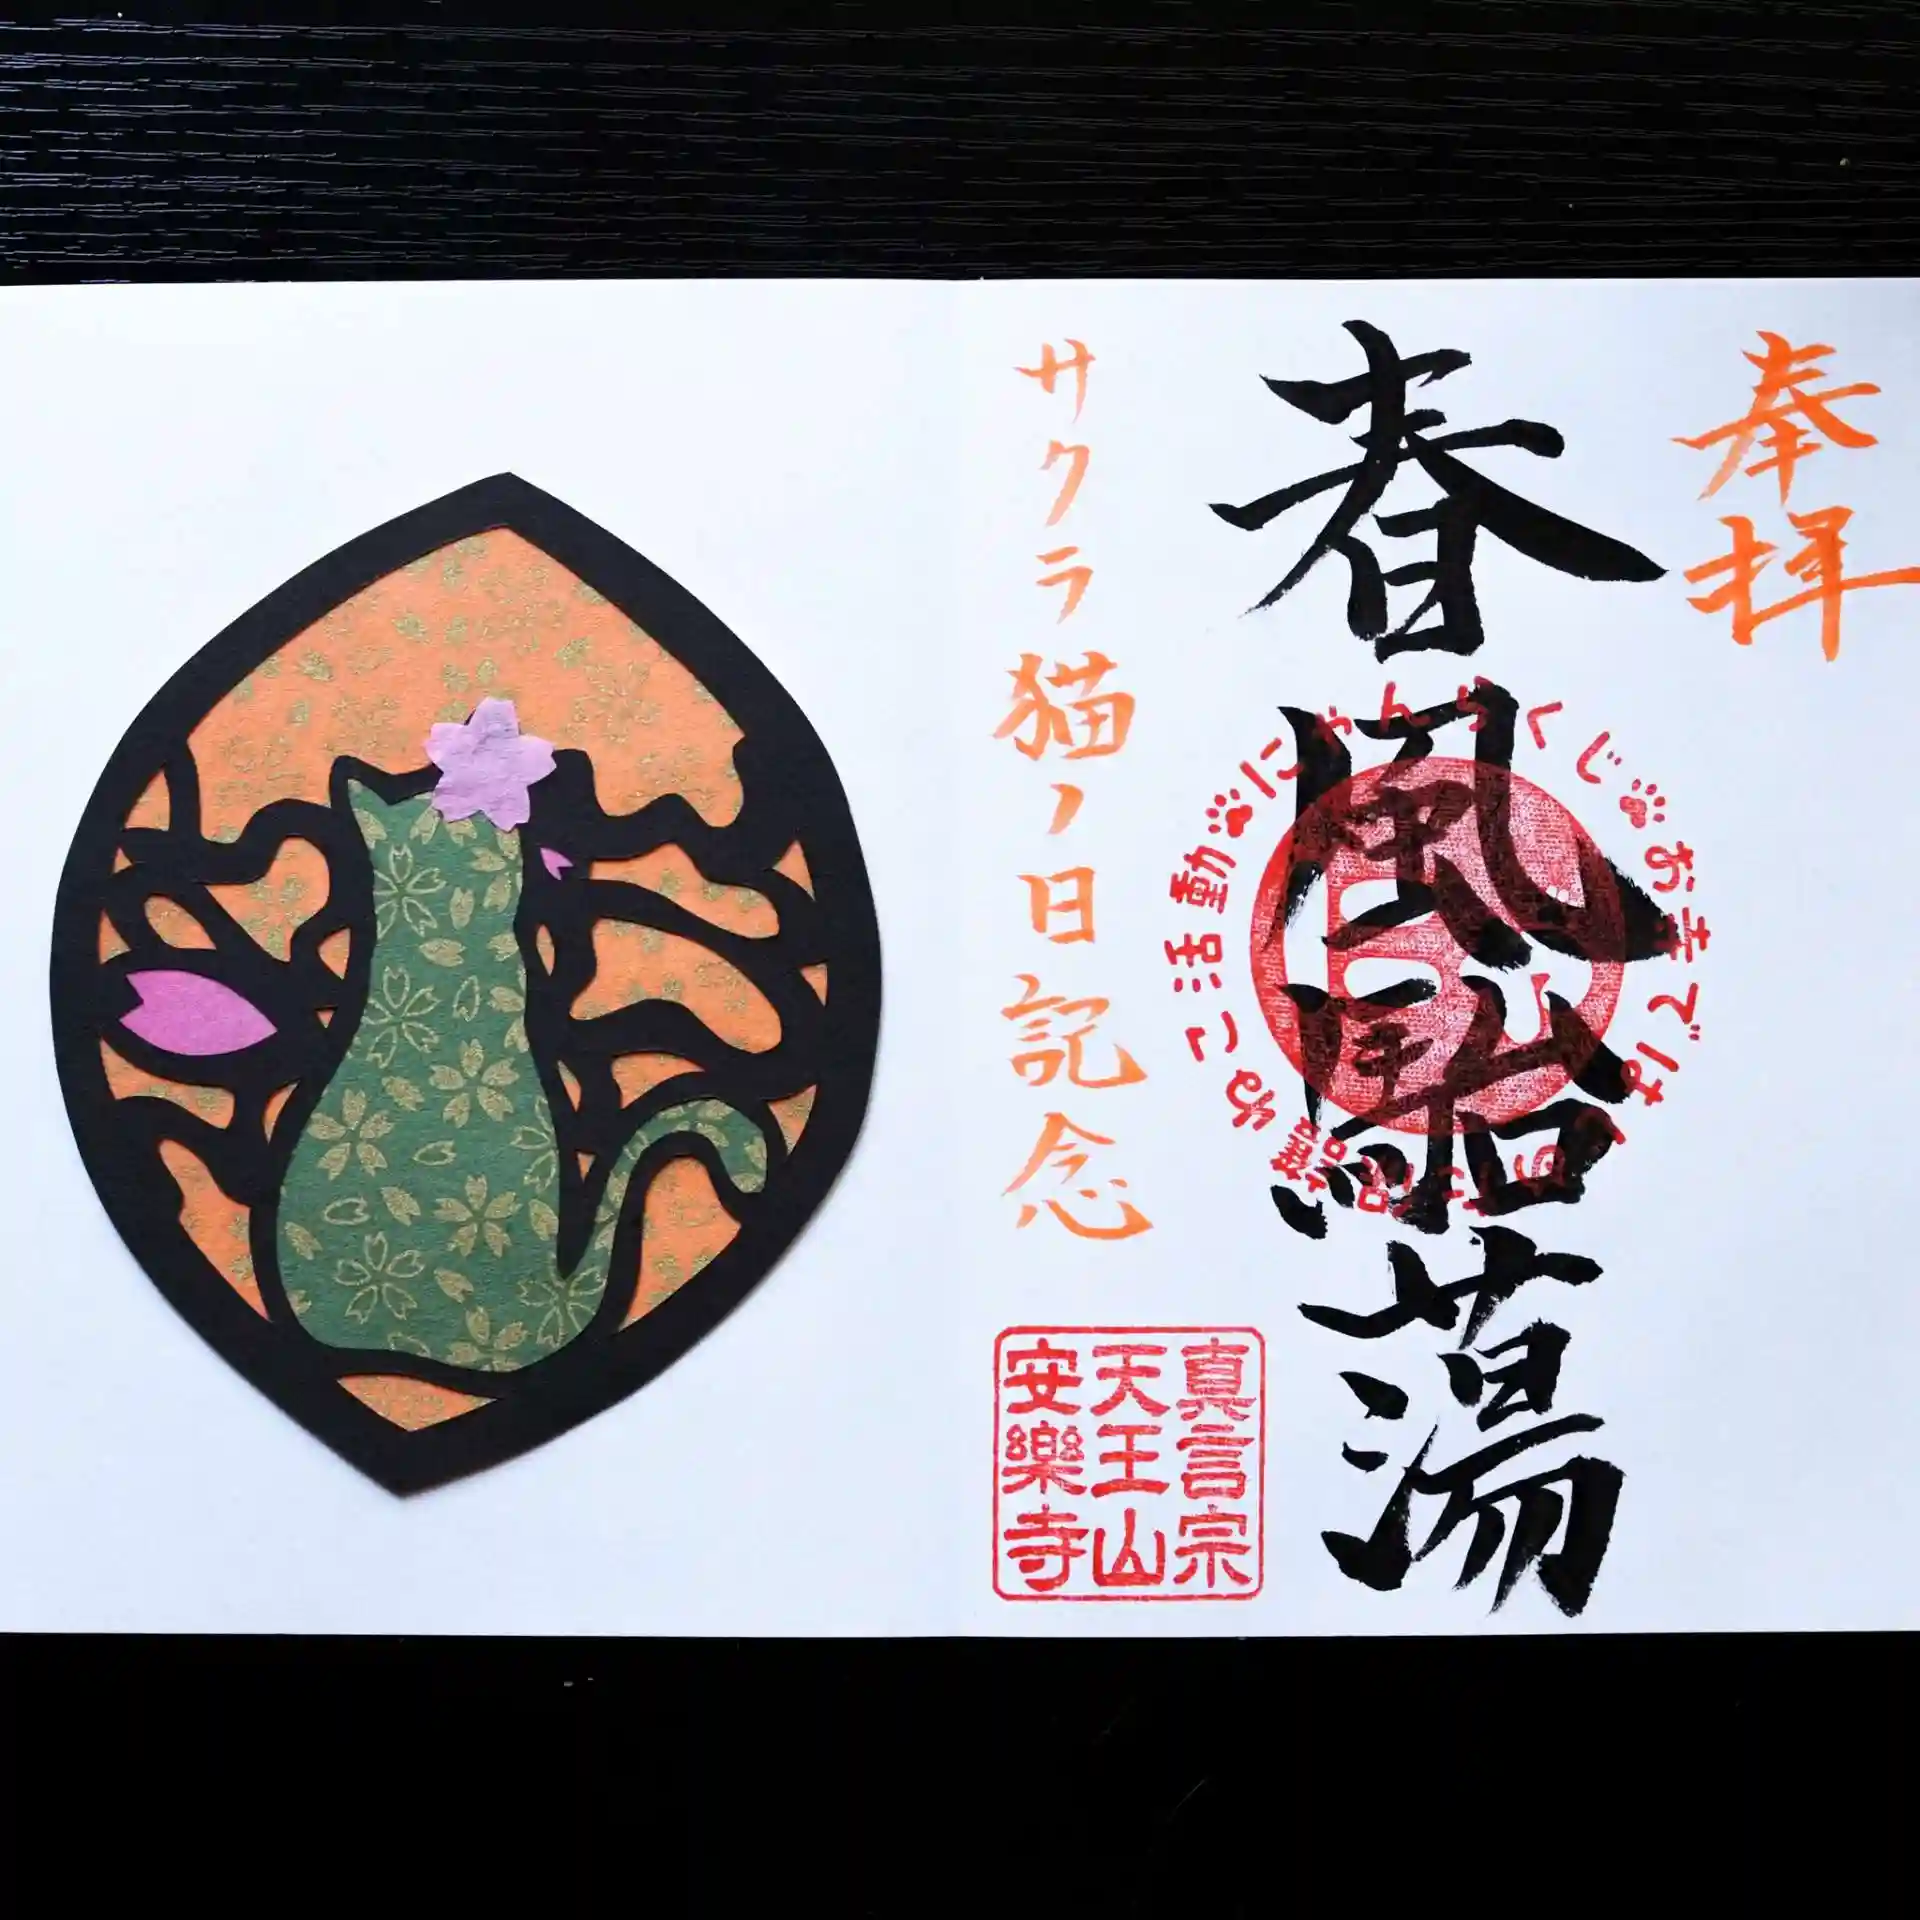 奉拝
春風駘蕩
にゃんらくじ
お寺では
ねこ活動
サクラ猫ノ日記念
真言宗
天王山
安樂寺